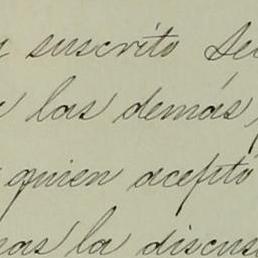 suscrito Se
las demás,
quien aceptó
as la discus